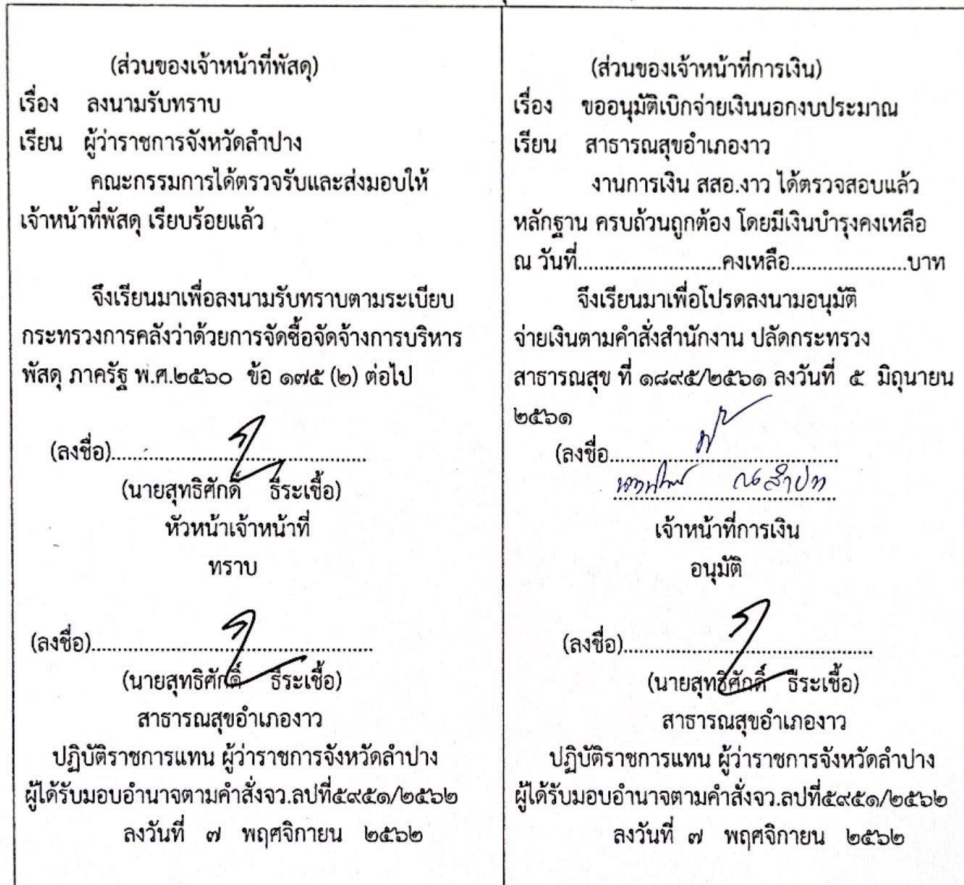 (ส่วนของเจ้าหน้าที่พัสดุ)
เรื่อง ลงนามรับทราบ
เรียน ผู้ว่าราชการจังหวัดลำปาง
คณะกรรมการได้ตรวจรับและส่งมอบให้
เจ้าหน้าที่พัสดุ เรียบร้อยแล้ว
จึงเรียนมาเพื่อลงนามรับทราบตามระเบียบ
กระทรวงการคลังว่าด้วยการจัดซื้อจัดจ้างการบริหาร
พัสดุ ภาครัฐ พ.ศ.๒๕๖๐ ข้อ ๑๗๕ (๒) ต่อไป
(ลงชื่อ)..........................................
(นายสุทธิศักดิ์ ธีระเชื้อ)
หัวหน้าเจ้าหน้าที่
ทราบ
(ลงชื่อ)..............................................
(นายสุทธิศักดิ์ ธีระเชื้อ)
สาธารณสุขอำเภองาว
ปฏิบัติราชการแทน ผู้ว่าราชการจังหวัดลำปาง
ผู้ได้รับมอบอำนาจตามคำสั่งจว.ลปที่๕๙๕๑/๒๕๖๒
ลงวันที่ ๗ พฤศจิกายน ๒๕๖๒
(ส่วนของเจ้าหน้าที่การเงิน)
เรื่อง ขออนุมัติเบิกจ่ายเงินนอกงบประมาณ
เรียน สาธารณสุขอำเภองาว
งานการเงิน สสอ.งาว ได้ตรวจสอบแล้ว
หลักฐาน ครบถ้วนถูกต้อง โดยมีเงินบำรุงคงเหลือ
ณ วันที่........................คงเหลือ....................บาท
จึงเรียนมาเพื่อโปรดลงนามอนุมัติ
จ่ายเงินตามคำสั่งสำนักงาน ปลัดกระทรวง
สาธารณสุข ที่ ๑๘๙๕/๒๕๖๑ ลงวันที่ ๕ มิถุนายน
๒๕๖๑
(ลงชื่อ..................................
ณ ลำปาง
เจ้าหน้าที่การเงิน
อนุมัติ
(ลงชื่อ)..........................................
(นายสุทธิศักดิ์ ธีระเชื้อ)
สาธารณสุขอำเภองาว
ปฏิบัติราชการแทน ผู้ว่าราชการจังหวัดลำปาง
ผู้ได้รับมอบอำนาจตามคำสั่งจว.ลปที่๕๙๕๑/๒๕๖๒
ลงวันที่ ๗ พฤศจิกายน ๒๕๖๒